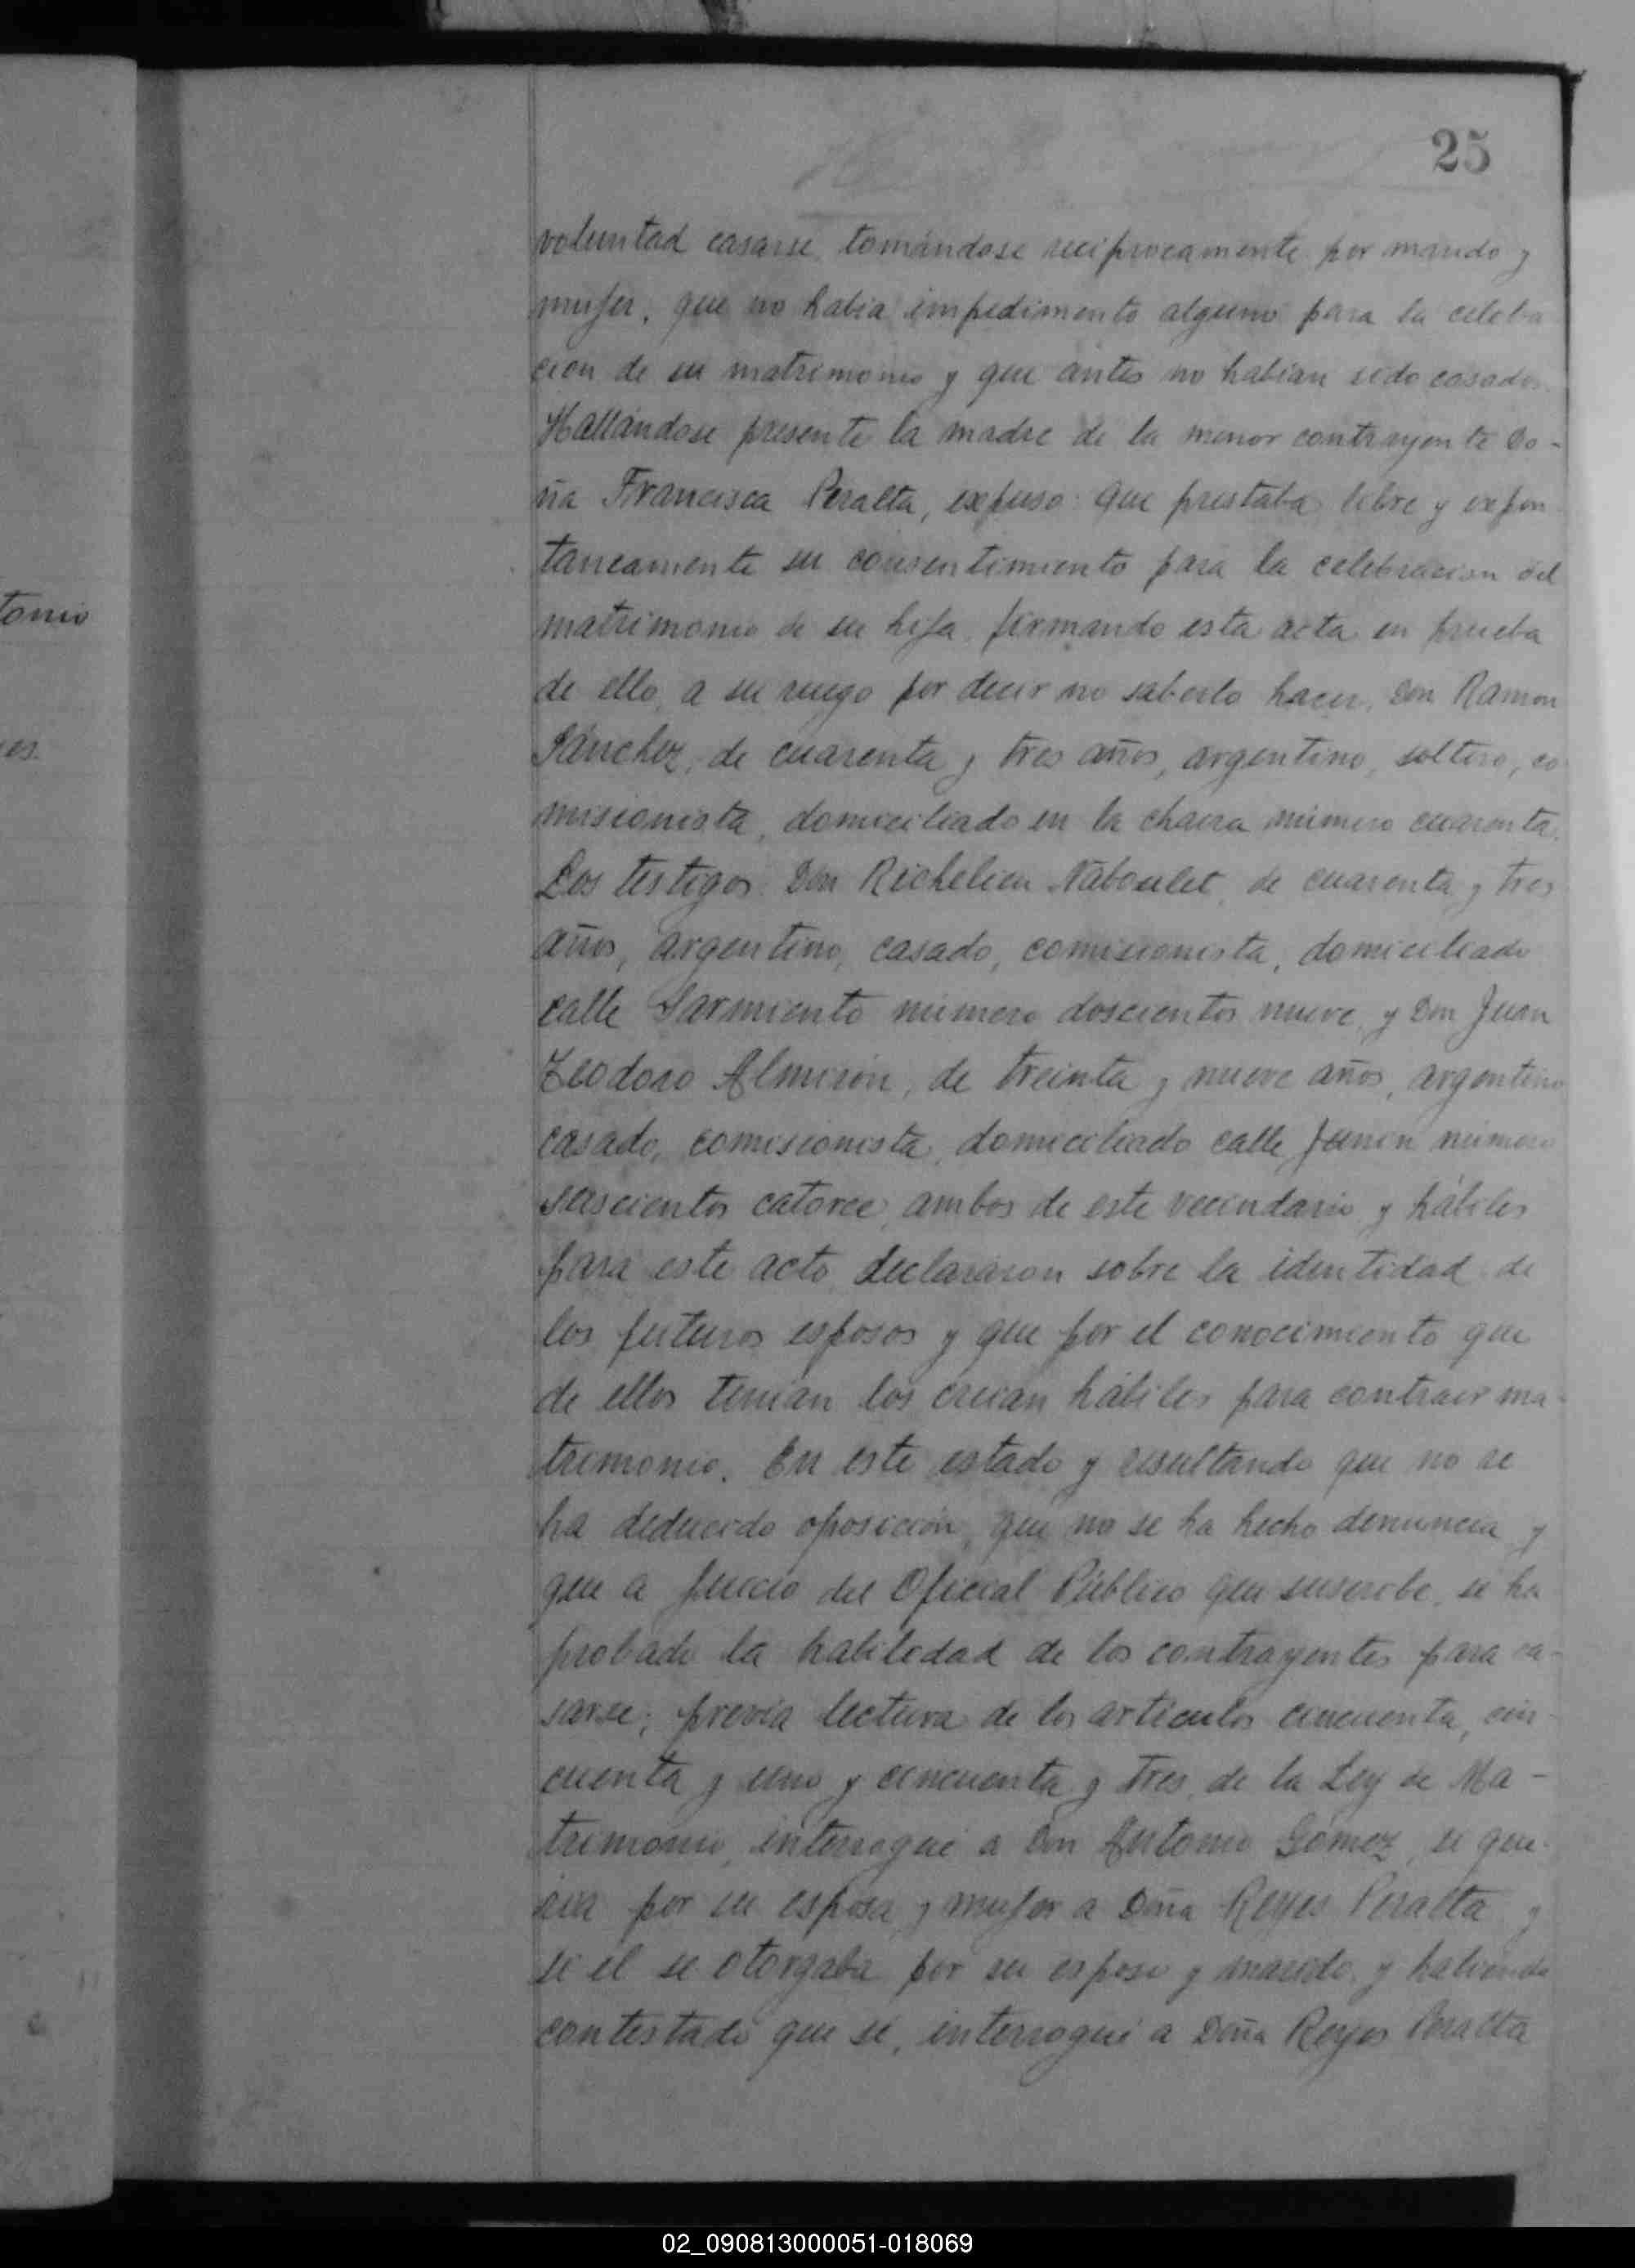 25
voluntad casarse, tomándose reciprocamente por marido y
mujer, que no habia impedimento alguno para la celebra
cion de su matrimonio y que antes no habian sido casados.
Hallándose presente la madre de la menor contrayente Do-
ña Francisca Peralta, expuso: que prestaba libre y expon
taneamente su consentimiento para la celebracion del
matrimonio de su hija, firmando esta acta en prueba
de ello, a su ruego por decir no saberlo hacer, Don Ramon
Sánchez, de cuarenta y tres años, argentino, soltero, co
misionista, domiciliado en la chacra número cuarenta.
Los testigos Don Richelieu Naboulet, de cuarenta y tres
años, argentino, casado, comisionista, domiciliado
calle Sarmiento número doscientos nueve, y Don Juan
Teodoro Almirón, de treinta y nueve años, argentino
casado, comisionista, domiciliado calle Junin número
catorce, ambos de este vecindario y hábiles
para este acto, declararon sobre la identidad de
los futuros esposos y que por el conocimiento que
de ellos tenian los creian hábiles para contraer ma-
trimonio. En este estado y resultando que no se
ha deducido oposición, que no se ha hecho denuncia y
que a juicio del Oficial Público que suscribe, se ha
probado la habilidad de los contrayentes para ca-
sarse; previa lectura de los artículos cincuenta, cin-
cuenta y uno y cincuenta y tres de la Ley de Ma-
trimonio, interrogué a Don Antonio Gómez, si que-
ria por su esposa y mujer a Doña Reyes Peralta y
si él se otorgaba por su esposo y marido, y habiendo
contestado que sí, interrogué a Doña Reyes Peralta
tonio
es.
02_090813000051-018069